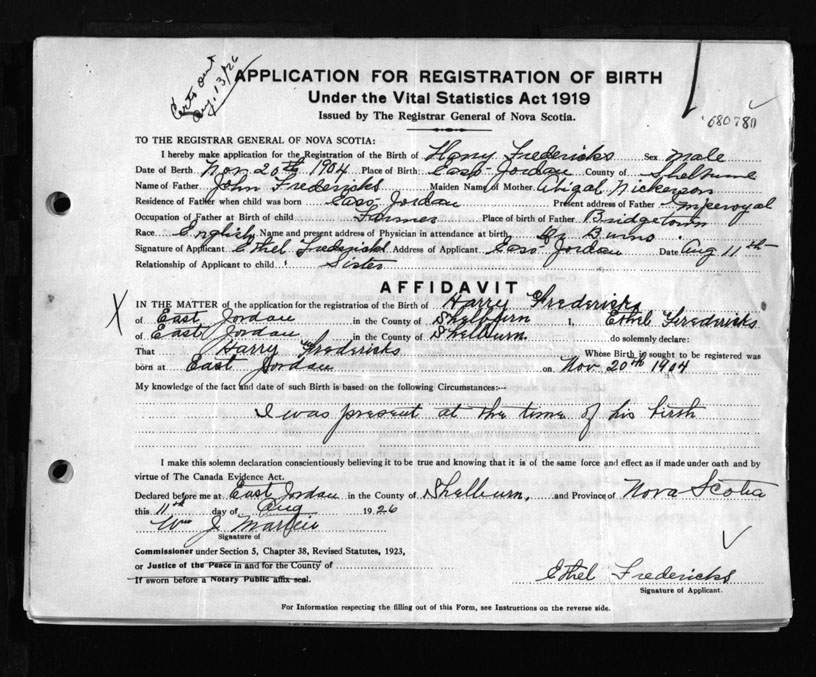 Certs out
Aug. 13/26
APPLICATION FOR REGISTRATION OF BIRTH
Under the Vital Statistics Act 1919
Issued by The Registrar General of Nova Scotia.
680780
TO THE REGISTRAR GENERAL OF NOVA SCOTIA:
I hereby make application for the Registration of the Birth of Harry Fredericks Sex Male
Date of Birth Nov 20th 1904 Place of Birth East Jordan County of Shelburne
Name of Father John Fredericks Maiden Name of Mother Abigal Nickerson
Residence of Father when child was born East Jordan Present address of Father Imperoyal
Occupation of Father at Birth of child Farmer Place of birth of Father Bridgetown
Race English Name and present address of Physician in attendance at birth Dr Burns
Signature of Applicant Ethel Fredericks Address of Applicant East Jordan Date Aug 11th
Relationship of Applicant to child Sister
AFFIDAVIT
X
IN THE MATTER of the application for the registration of the Birth of Harry Fredericks
of East Jordan in the County of Shelburn I, Ethel Fredericks
of East Jordan in the County of Shelburn do solemnly declare:
That Harry Fredericks Whose Birth is sought to be registered was
born at East Jordan on Nov. 20th 1904
My knowledge of the fact and date of such Birth is based on the following Circumstances:—
I was present at the time of his birth
I make this solemn declaration conscientiously believing it to be true and knowing that it is of the same force and effect as if made under oath and by
virtue of The Canada Evidence Act.
Declared before me at East Jordan in the County of Shelburn, and Province of Nova Scotia
this 11th day of Aug 1926
Wm J.
Signature of
Commissioner under Section 3, Chapter 38, Revised Statutes, 1923,
or Justice of the Peace in and for the County of
If sworn before a Notary Public affix seal.
Ethel Fredericks
Signature of Applicant.
For Information respecting the filling out of this Form, see Instructions on the reverse side.